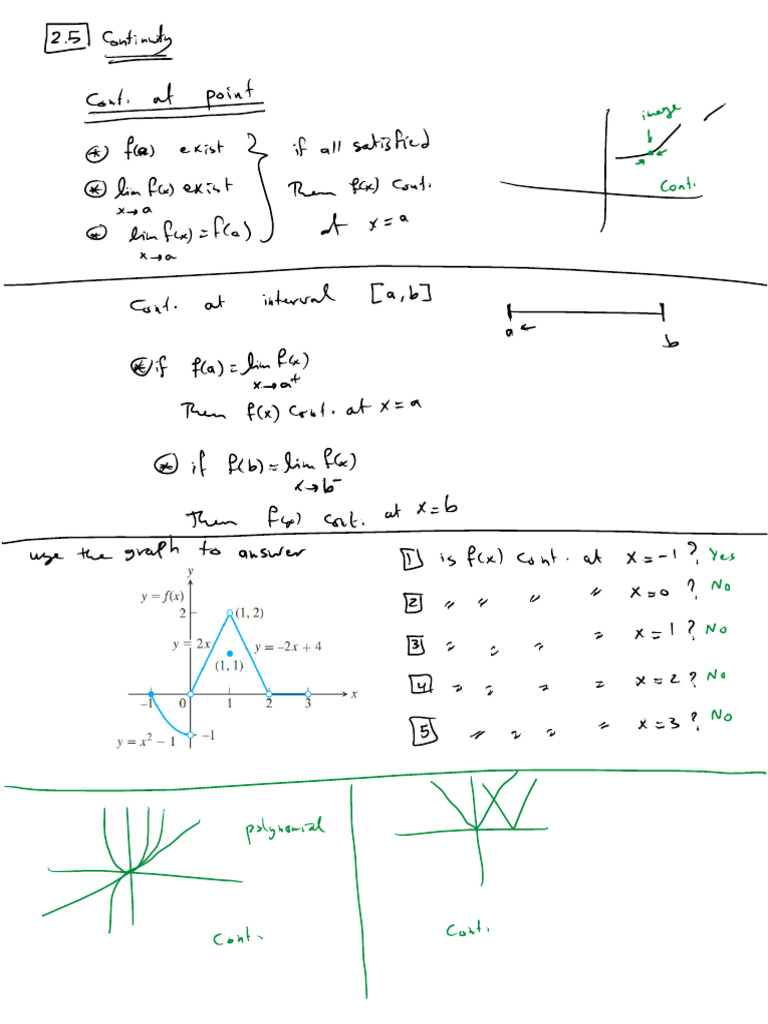 2.5 Continuity
Cont. at point
⊛ f(a) exist
⊛ lim f(x) exist
x→a
⊛ lim f(x) = f(a)
x→a
if all satisfied
Then f(x) Cont.
at x = a
image
b
Cont.
Cont. at interval [a,b]
a ←
b
⊛ if f(a) = lim f(x)
x→a⁺
Then f(x) Cont. at x = a
⊛ if f(b) = lim f(x)
x→b⁻
Then f(x) cont. at x = b
use the graph to answer
y
y = f(x)
2
(1, 2)
y = 2x
y = –2x + 4
(1, 1)
–1 0 1 2 3 x
y = x² – 1
–1
1 is f(x) cont. at x = -1 ? Yes
2 〃 〃 〃 〃 x = 0 ? No
3 〃 〃 〃 〃 x = 1 ? No
4 〃 〃 〃 〃 x = 2 ? No
5 〃 〃 〃 〃 x = 3 ? No
polynomial
Cont.
Cont.